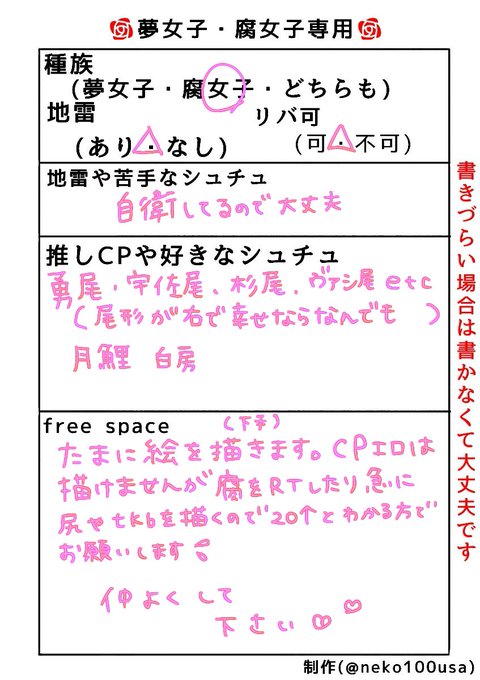 夢女子・腐女子専用
種族
(夢女子・腐女子・どちらも)
地雷 リバ可
(あり・なし) (可・不可)
地雷や苦手なシュチュ
自衛してるので大丈夫
推しCPや好きなシュチュ
勇尾・宇佐尾、杉尾、ヴァシ尾etc
(尾形が右で幸せならなんでも )
月鯉 白房
free space (下手)
たまに絵を描きます。CPエロは
描けませんが腐をRTしたり、急に
尻やtkbを描くので20↑とわかる方で
お願いします
仲よくして
下さい♡♡
書きづらい場合は書かなくて大丈夫です
制作(@neko100usa)